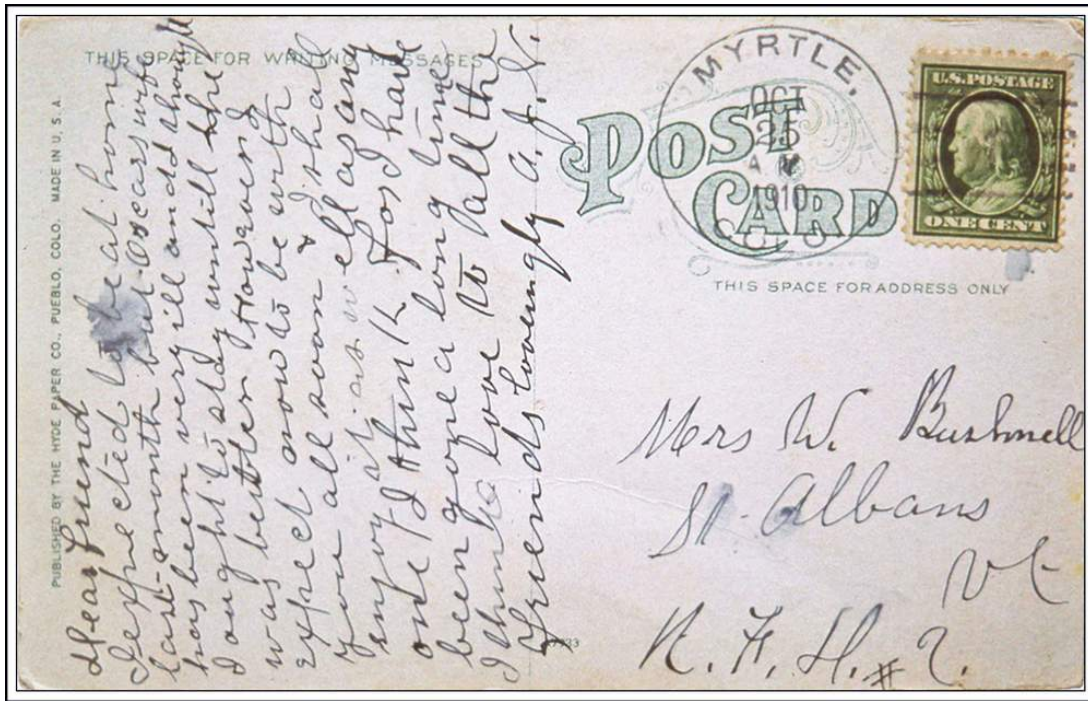 THIS SPACE FOR WRITING MESSAGES
PUBLISHED BY THE HYDE PAPER CO., PUEBLO, COLO. MADE IN U.S.A.
Dear friend
I expected to be at home
last month but Oscars wife
has been very ill and I thought
I ought to stay untill she
was better However I
expect now to be with
you all soon & I shall
enjoy it as well as any
one I think. For I have
been gone a long time
I think love to all the
friends Lovingly A. J. N.
MYRTLE,
OCT
25
A M
1910
COLO.
POST
CARD
U.S. POSTAGE
ONE CENT
THIS SPACE FOR ADDRESS ONLY
Mrs W. Bushnell
St Albans
Vt